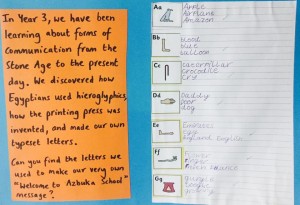 In Year 3, we have been
learning about forms of
Communication from the
Stone Age to the present
day. We discovered how
Egyptians used hieroglyphics,
how the printing press was
invented, and made our own
typeset letters.
Can you find the letters we
used to make our very own
"Welcome to Azbuka School"
message?
Aa
Apple
Airplane
Amazon
Bb
blood
but
balloon
Cc
caterpillar
crocodile
cry
Dd
Daddy
door
dog
Ee
egg
Ff
finger
Gg
google